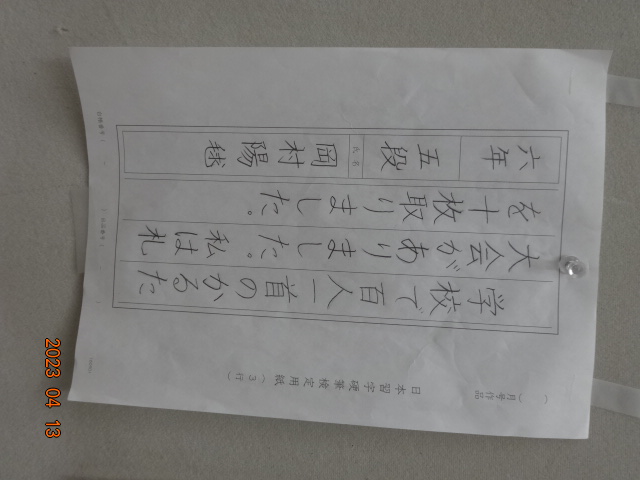 （　）月号作品
日本習字硬筆検定用紙（３行）
学校で百人一首のかるた
大会がありました。私は札
を十枚取りました。
六年
五段
氏名
岡村陽毬
2023 04 13